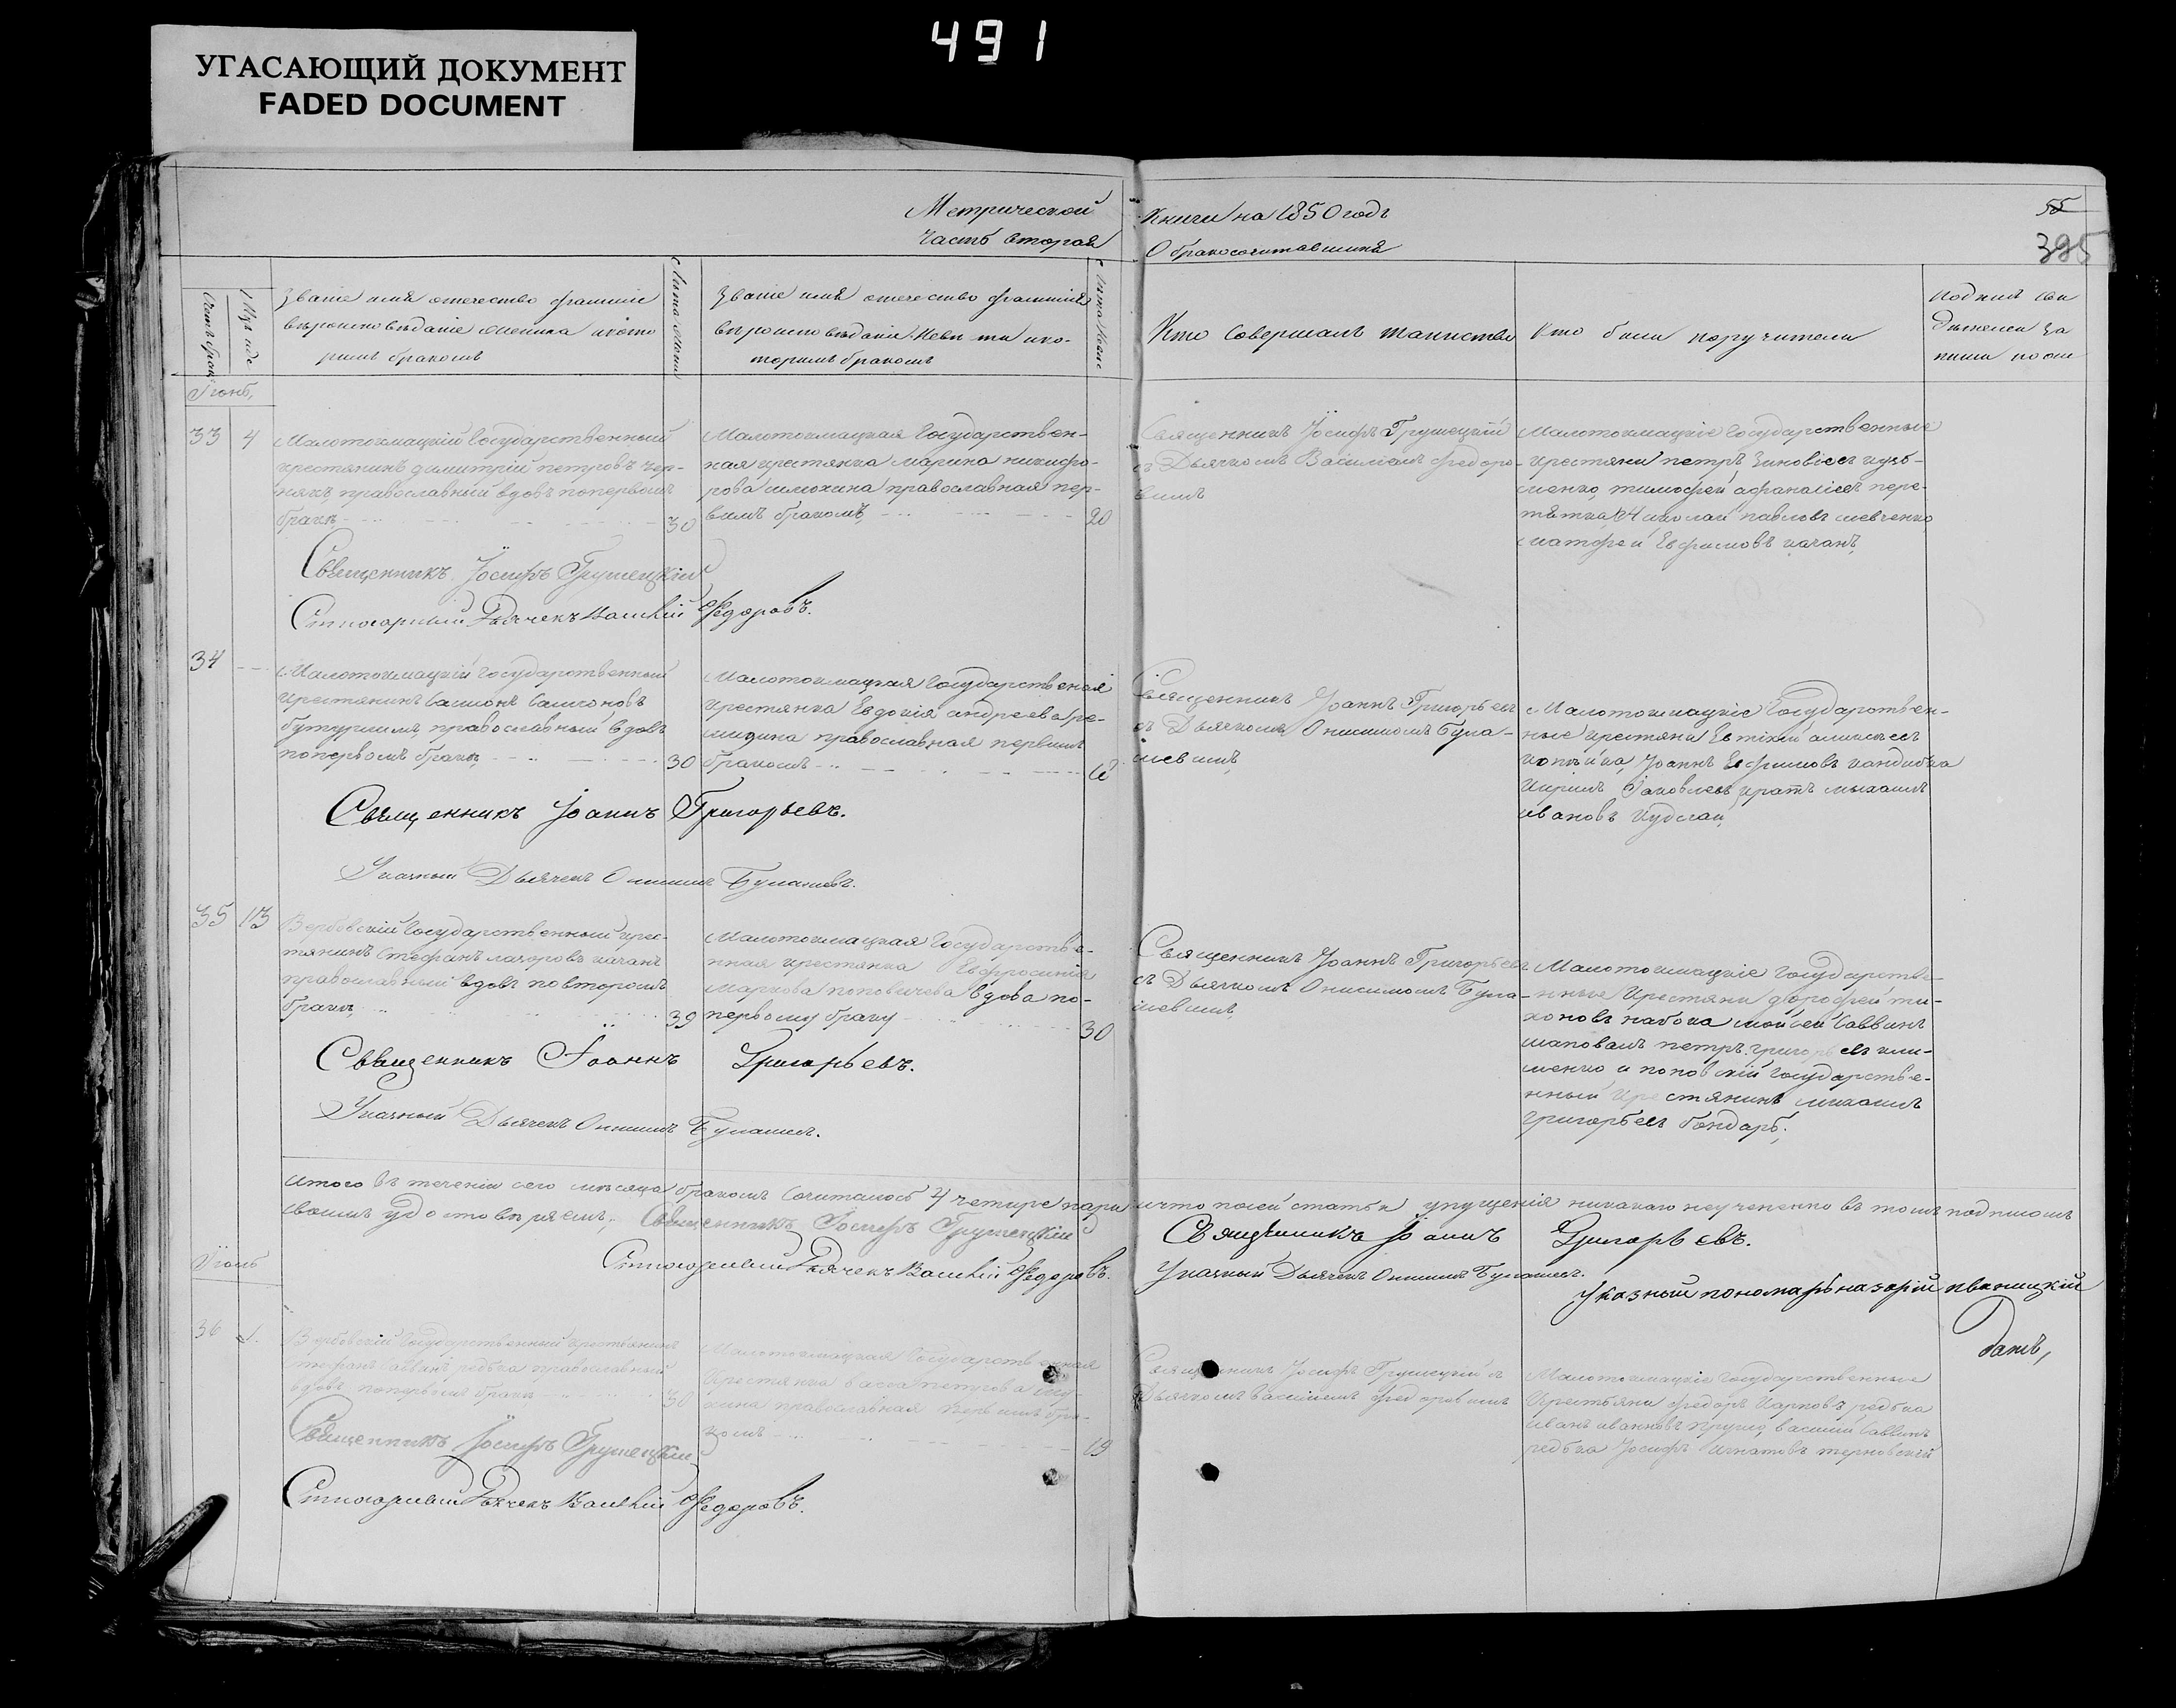 491
УГАСАЮЩИЙ ДОКУМЕНТ
FADED DOCUMENT
Метрической
Часть вторая
Книги на 1850 годъ
О бракосочитавшихъ
55
395
Званіе имя отечество фамиліе
вѣроисповѣданіе жениха икото
римъ бракомъ
Званіе имя отечество фамиліе
вѣроисповѣданіе невѣсти ико-
торимъ бракомъ
Кто Совершалъ таинство
Кто били поручители
33
4
Малотокмацкій Государственный
крестянинъ димитрій петровъ чер-
някъ православній вдовъ попервомъ
бракѣ
30
Малотокмацкая Государствен-
ная крестянка марина никифо-
рова православная пер-
вимъ бракомъ,
20
Священникъ Іосифъ Грушецкій
съ Дьячкомъ Василіемъ федоро-
вимъ
Малотокмацкіе государственные
крестяни петръ Зиновіевъ кузь-
менко, тимофей афанасіевъ пере-
тятка, Николай павловъ шевченко
матфей Евфимовъ качанъ,
Священникъ Іосифъ Грушецкій
Дьячекъ Василій Федоровъ.
34
Малотокмацкій государственный
крестянинъ Самсонъ Самсоновъ
православный вдовъ
попервомъ бракѣ,
30
Малотокмацкая государственая
крестянка Евдокія андреева
православная первимъ
бракомъ
Священникъ Іоаннъ Григорьевъ
съ Дьячкомъ Онисимомъ Була-
шевимъ,
Малотокмацкіе Государствен-
ные крестяна Евтихій
Іоаннъ Евфимовъ кандиба
Кирилъ Іаковлевъ кратъ михаилъ
ивановъ
Священникъ Іоаннъ Григорьевъ.
Указный Дьячекъ Онисимъ Булашевъ.
35
13
Вербовскій Государственный крес-
тянинъ Стефанъ лазоровъ качанъ
православный вдовъ повторомъ
бракѣ,
39
Малотокмацкая Государстве-
нная крестянка Евфросинія
Маркова поповичева вдова по-
первому браку
30
Священникъ Іоаннъ Григорьевъ
съ Дьячкомъ Онисимомъ Була-
шевимъ,
Малотокмацкіе Государстве-
нные Крестяни дорофей ти-
хоновъ набока мойсей Саввинъ
шаповалъ петръ григорьевъ кли-
менко и поповскій государстве-
нный крестянинъ михаилъ
григорьевъ бондарь,
Священникъ Іоаннъ Григорьевъ.
Указный Дьячекъ Онисимъ Булашевъ.
Итого въ теченіи сего мѣсяца бракомъ Сочиталось 4 четире пари ичто посей статьи упущенія никакаго неучененно въ томъ подписомъ
своимъ удостовѣряемъ, Священникъ Іосифъ Грушецкій
Священникъ Іоаннъ Григорьевъ.
Дьячекъ Василій Федоровъ.
Указный Дьячекъ Онисимъ Булашевъ.
Указный пономарь назарій
36
Вербовскій Государственный крестьянинъ
стефанъ Саввинъ редька православный
вдовъ попервомъ бракѣ
30
Малотокмацкая Государственная
Крестянка васса петрова
православная первимъ бра-
комъ
19
Священникъ Іосифъ Грушецкій съ
Дьячкомъ василіемъ федоровимъ
Малотокмацкіе Государственные
Крестьяни федоръ Карповъ редька
иванъ ивановъ василій Саввинъ
редька Іосифъ Игнатовъ терновскій
Священникъ Іосифъ Грушецкій
Дьячекъ Василій Федоровъ.